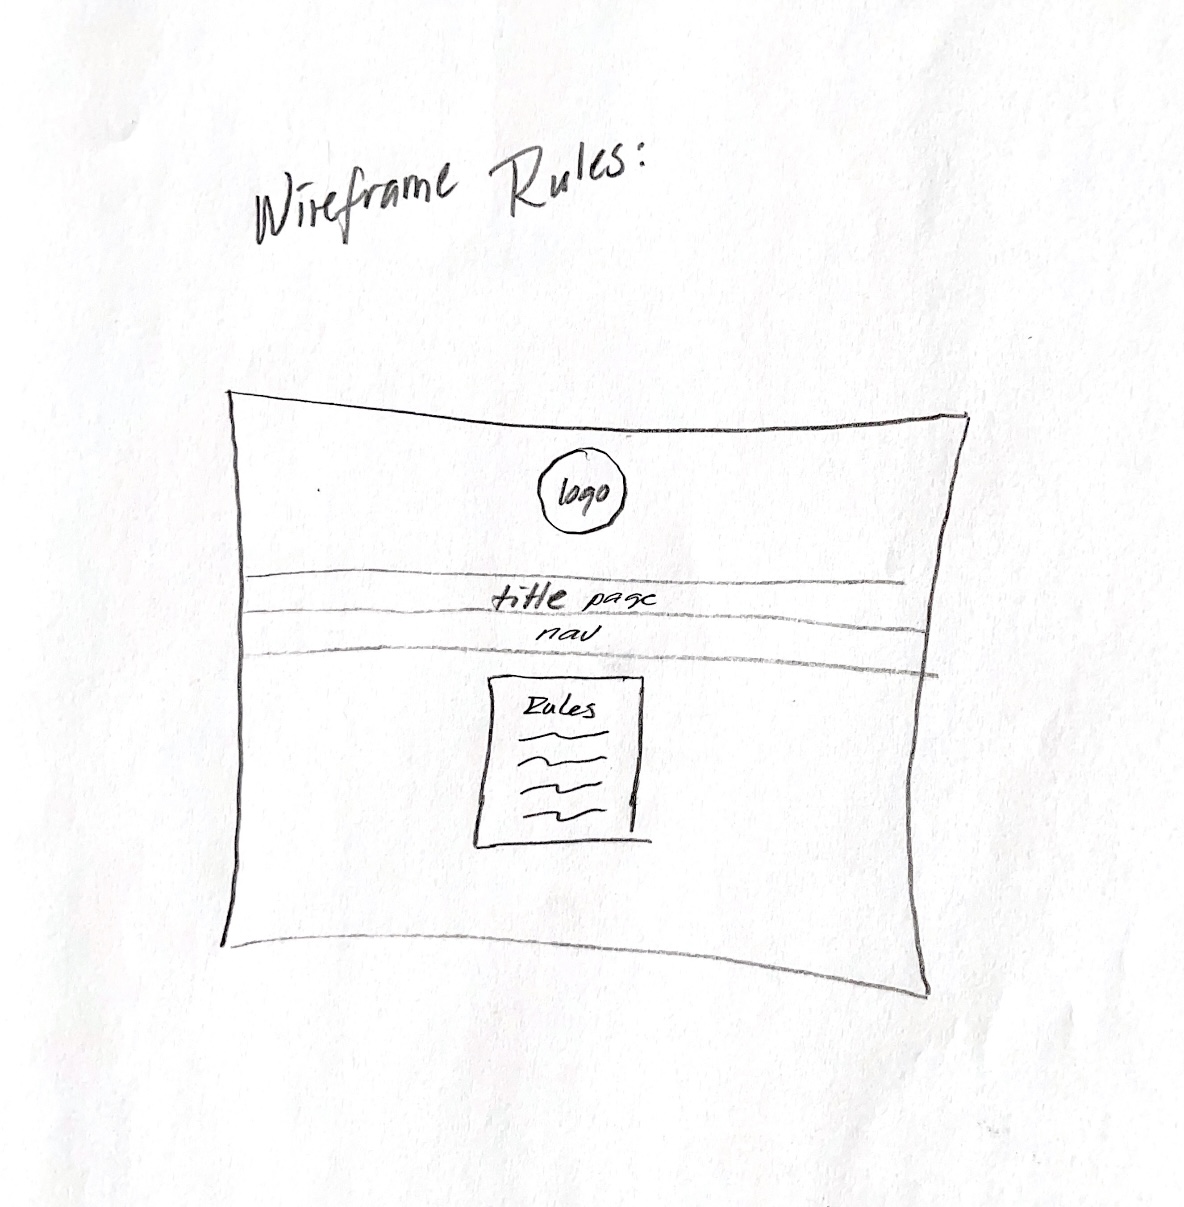 Wireframe Rules:
logo
title page
nav
Rules